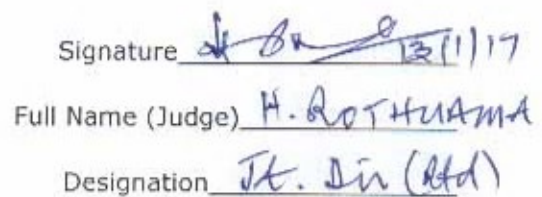 Signature 13/1/17
Full Name (Judge) H. ROTHUAMA
Designation Jt. Dir (Rtd)